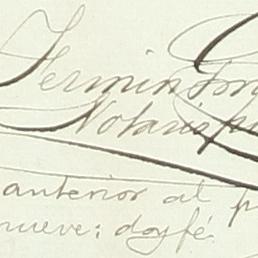 Fermin
Notario
anterior al
nueve; doy fé